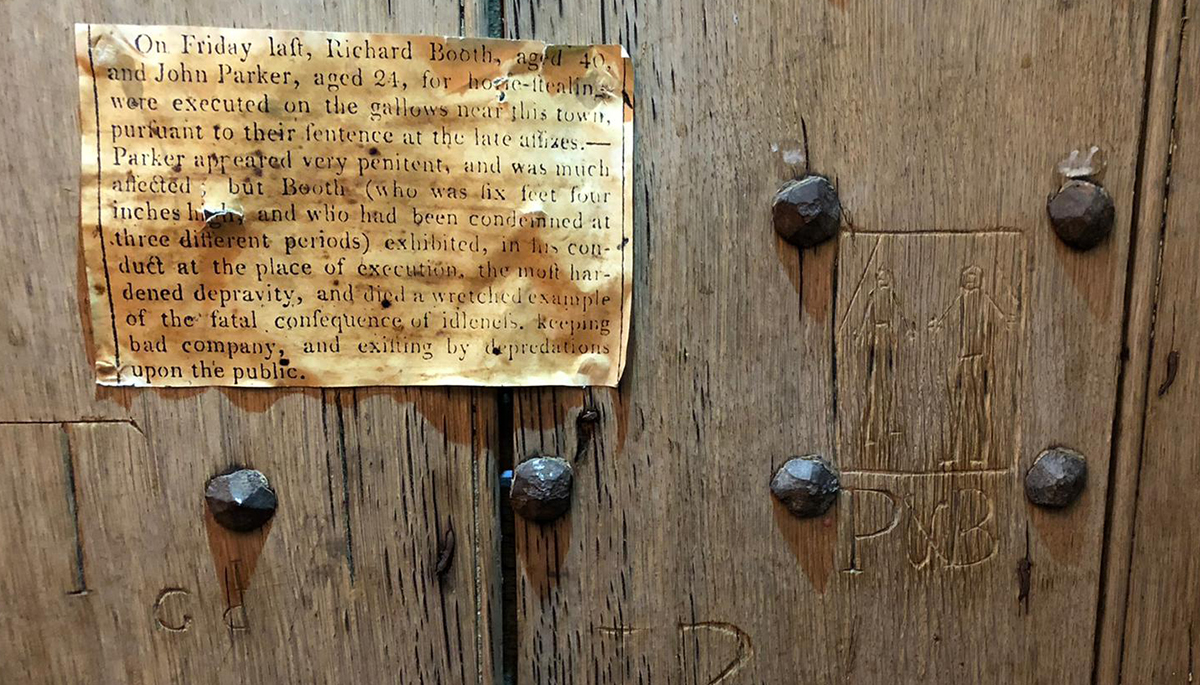 On Friday laſt, Richard Booth, aged 40,
and John Parker, aged 24, for horſe-ſtealing
were executed on the gallows near this town,
purſuant to their ſentence at the late aſſizes.—
Parker appeared very penitent, and was much
affected; but Booth (who was ſix feet four
inches high, and who had been condemned at
three different periods) exhibited, in his con-
duct at the place of execution, the moſt har-
dened depravity, and died a wretched example
of the fatal conſequence of idleneſs, keeping
bad company, and exiſting by depredations
upon the public.
P & B
T
G